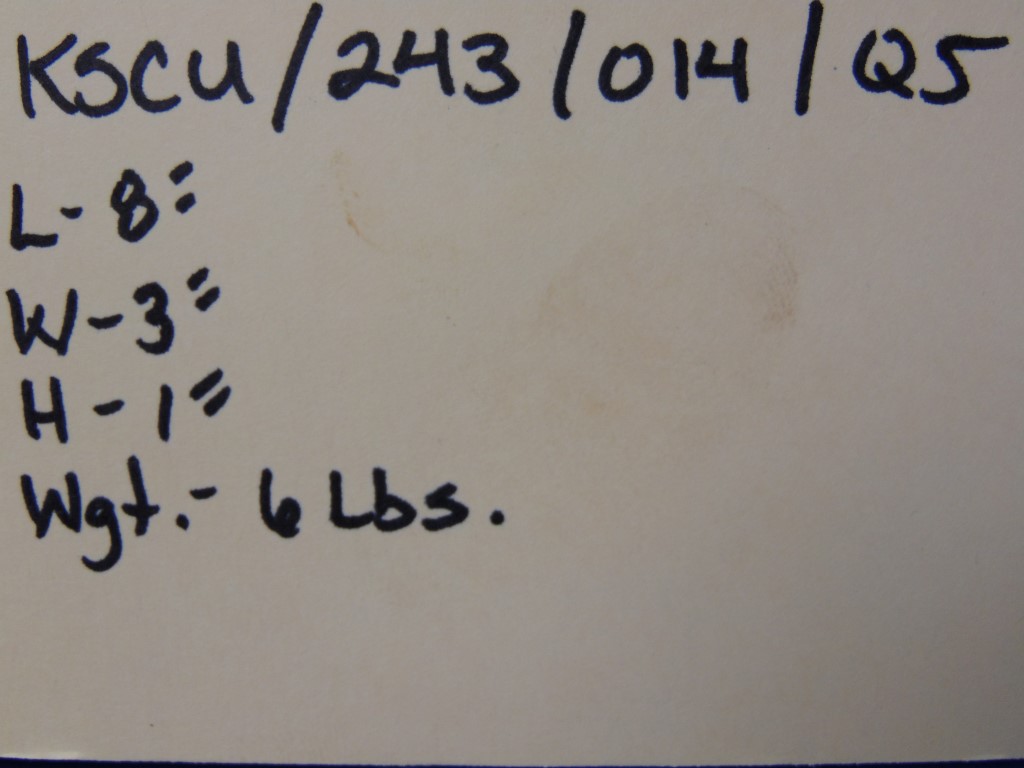 KSCU/243/014/Q5
L- 8"
W-3"
H-1"
Wgt.- 6 Lbs.